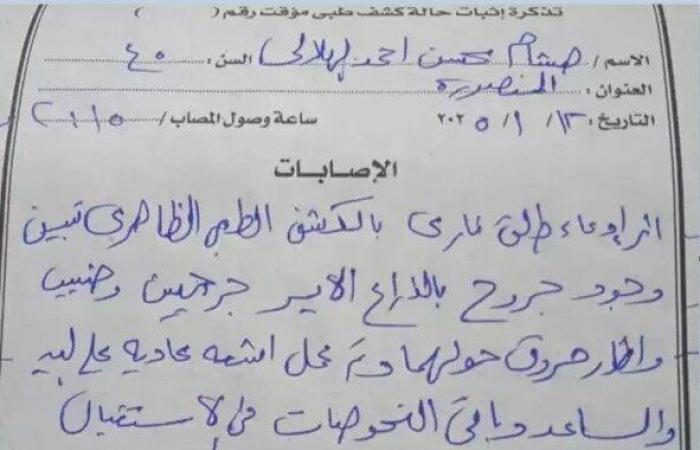 تذكرة إثبات حالة كشف طبى مؤقت رقم ( )
الاسم / هشام محسن احمد الهلالى السن : ٤٠
العنوان : المنصورة
التاريخ : ١٣ / ١ / ٢٠٢٥ ساعة وصول المصاب /
الإصابات
اثر إدعاء طلق نارى بالكشف الطبى الظاهرى تبين
وجود جروح بالذراع الايسر جرحين
واثار حروق حولهما وتم عمل اشعه عاديه على اليد
والساعد وباقى الفحوصات فى الاستقبال